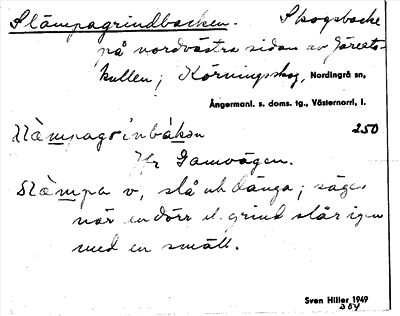 Slämpagrindbacken. Skogsbacke
på nordvästra sidan av
kullen; Körningskog, Nordingrå sn,
Ångermanl. s. doms. tg., Västernorrl. l.
250
Hr Gamvägen.
slämpa v, slå och dänga; säges
när en dörr el. grind slår igen
med en smäll.
Sven Hiller 1949